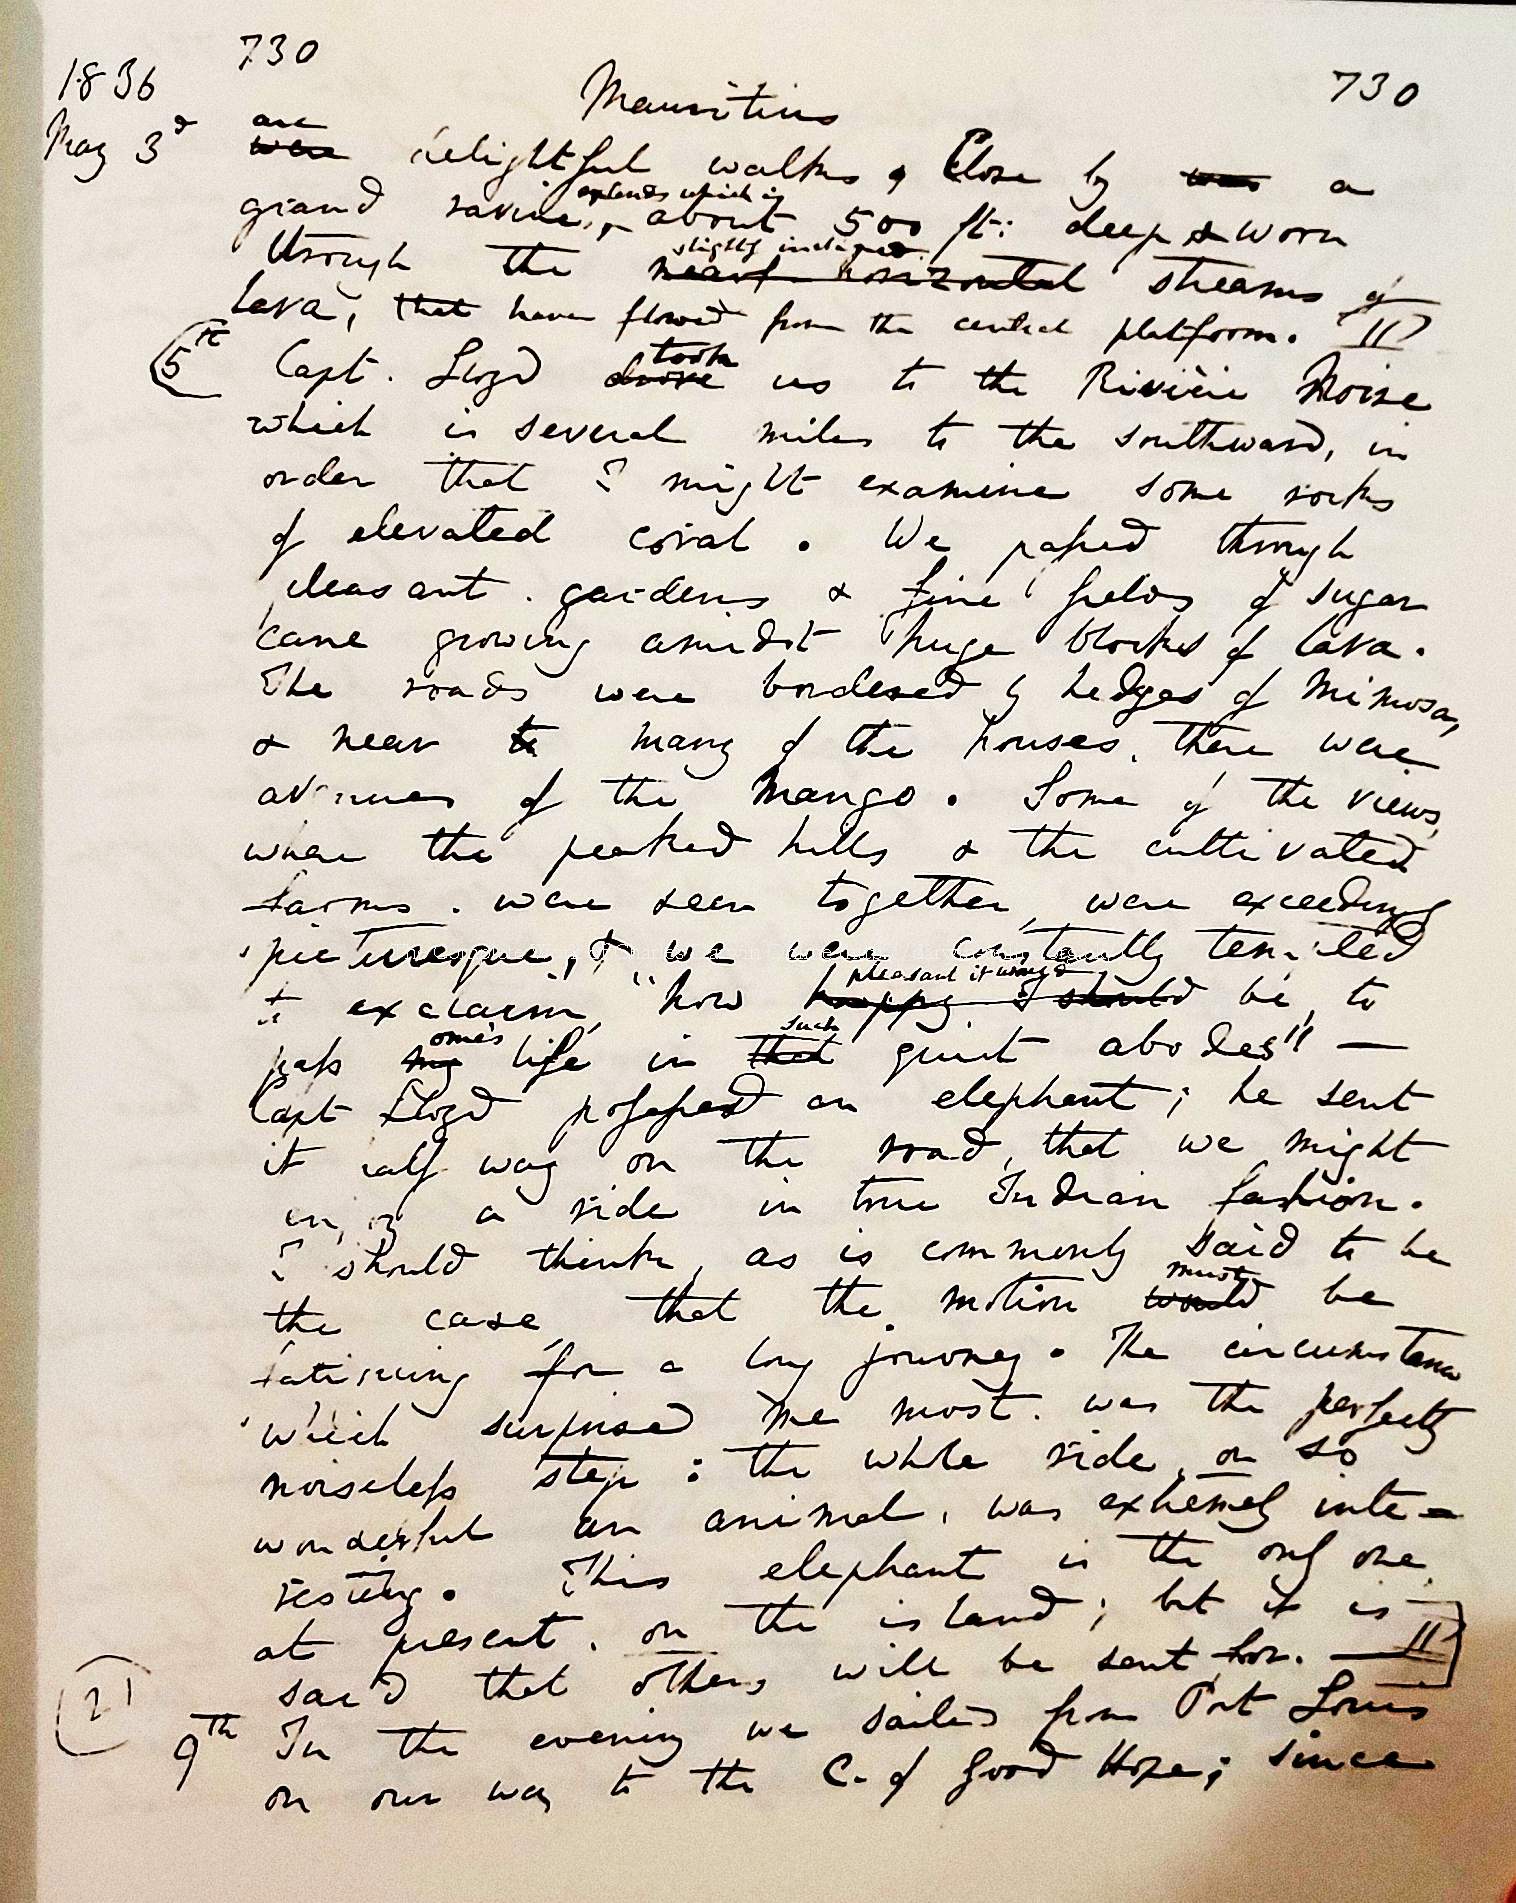 730
730
1836
Mauritius
May 3d
are
were delightful walks, Close by was a
extends which is
grand ravine, about 500 ft: deep & worn
slightly inclined
through the nearly horizontal streams of
lava, that have flowed from the central platform.
5th Capt. Lloyd drove took us to the Rivière Noire
which is several miles to the southward, in
order that I might examine some rocks
of elevated coral. We passed through
pleasant gardens & fine fields of sugar
cane growing amidst huge blocks of lava.
The roads were bordered by hedges of Mimosa,
& near to many of the houses, there were
avenues of the Mango. Some of the views,
where the peaked hills & the cultivated
farms were seen together, were exceedingly
picturesque, & we were constantly tempted
pleasant it would
to exclaim, "how happy I should be, to
one's such
pass my life in that quiet abodes" —
Capt Lloyd possessed an elephant; he sent
it half way on the road, that we might
enjoy a ride in true Indian fashion.
I should think, as is commonly said to be
must
the case, that the motion would be
fatiguing for a long journey. The circumstance
which surprised me most, was the perfectly
noiseless step: the whole ride, on so
wonderful an animal, was extremely inte-
resting. This elephant is the only one
at present, on the island; but it is
said that others will be sent for.
21
9th In the evening we sailed from Port Louis
on our way to the C. of Good Hope; since